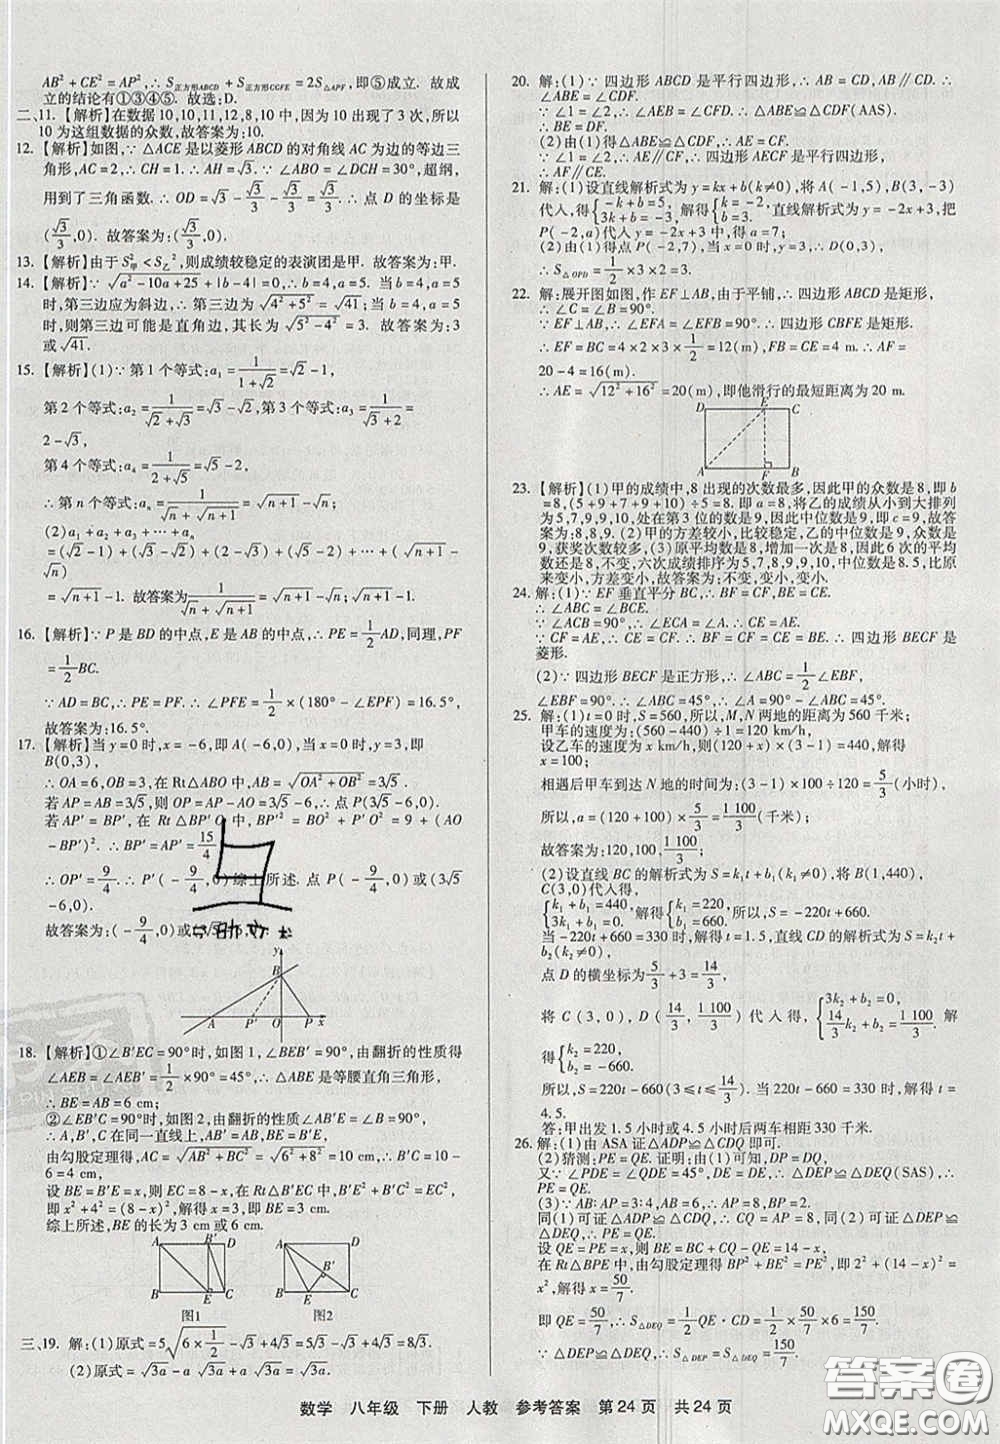 AB²+CE²=AP²,∴S正方形ABCD+S正方形CGFE=2S△APF,即⑤成立. 故成
立的结论有①③④⑤. 故选:D.
二、11.【解析】在数据10,10,11,12,8,10中,因为10出现了3次,所以
10为这组数据的众数,故答案为:10.
12.【解析】如图,∵△ACE是以菱形ABCD的对角线AC为边的等边三
角形,AC=2,∴CH=1. ∴AH=√3. ∵∠ABO=∠DCH=30°,超纲,
用到了三角函数. ∴OD=√3-2√3/3=√3/3. ∴点D的坐标是
(√3/3,0). 故答案为:(√3/3,0).
13.【解析】由于S²甲<S乙²,则成绩较稳定的表演团是甲. 故答案为:甲.
14.【解析】∵√(a²-10a+25)+|b-4|=0,∴b=4,a=5;当b=4,a=5
时,第三边应为斜边,∴第三边为√(4²+5²)=√41;当b=4,a=5
时,则第三边可能是直角边,其长为√(5²-4²)=3. 故答案为:3
或√41.
15.【解析】(1)∵第1个等式:a₁=1/(1+√2)=√2-1;
第2个等式:a₂=1/(√2+√3)=√3-√2,第3个等式:a₃=1/(√3+2)=
2-√3,
第4个等式:a₄=1/(2+√5)=√5-2,
∴第n个等式:aₙ=1/(√n+√(n+1))=√(n+1)-√n;
(2)a₁+a₂+a₃+…+aₙ
=(√2-1)+(√3-√2)+(2-√3)+(√5-2)+…+(√(n+1)-
√n)=√(n+1)-1. 故答案为1/(√n+√(n+1))=√(n+1)-√n;√(n+1)-1.
16.【解析】∵P是BD的中点,E是AB的中点,∴PE=1/2AD,同理,PF
=1/2BC.
∵AD=BC,∴PE=PF=∴∠PFE=1/2×(180°-∠EPF)=16.5°,
故答案为:16.5°.
17.【解析】当y=0时,x=-6,即A(-6,0),当x=0时,y=3,即
B(0,3),
∴OA=6,OB=3,在Rt△ABO中,AB=√(OA²+OB²)=3√5.
若AP=AB=3√5,则OP=AP-AO=3√5-6;∴点P(3√5-6,0)
若AP'=BP',在Rt△BP'O中,BP'²=BO²+P'O²=9+(AO
-BP')². ∴BP'=AP'=15/4
∴OP'=9/4,∴P'(-9/4,0)综上所述. 点P(-9/4,0),(3√5
-6,0).
故答案为:(-9/4,0)或(3√5-6,0).
y
B
A P' O P x
18.【解析】①∠B'EC=90°时,如图1,∠BEB'=90°,由翻折的性质得
∠AEB=∠AEB'=1/2×90°=45°,∴△ABE是等腰直角三角形,
∴BE=AB=6 cm;
②∠EB'C=90°时,如图2,由翻折的性质∠AB'E=∠B=90°,
∴A,B',C在同一直线上,AB'=AB,BE=B'E,
由勾股定理得,AC=√(AB²+BC²)=√(6²+8²)=10 cm,∴B'C=10-
6=4 cm,
设BE=B'E=x,则EC=8-x,在Rt△B'EC中,B'E²+B'C²=EC²,
即x²+4²=(8-x)²,解得x=3,即BE=3 cm,
综上所述,BE的长为3 cm或6 cm.
A B' D
B E C
图1
A D
B'
B E C
图2
三、19. 解:(1)原式=5√(6×1/2)-√3+4√3=5√3-√3+4√3=8√3.
(2)原式=√3a-a√3a+√3a=
20. 解:(1)∵四边形ABCD是平行四边形,∴AB=CD,AB∥CD.
∴∠ABE=∠CDF.
∵∠1=∠2,∴∠AEB=∠CFD. ∴△ABE≌△CDF(AAS).
∴BE=DF.
(2)由(1)得△ABE≌△CDF,∴AE=CF.
∵∠1=∠2,∴AE∥CF,∴四边形AECF是平行四边形.
∴AF=CE.
21. 解:(1)设直线解析式为y=kx+b(k≠0),将A(-1,5),B(3,-3)
代入,得{-k+b=5, 3k+b=-3, 解得{k=-2, b=3, 直线解析式为y=-2x+3,把
P(-2,a)代入y=-2x+3中,得a=7;
(2)由(1)得点P(-2,7),当x=0时,y=3,∴D(0,3),
∴S△OPD=1/2×3×2=3.
22. 解:展开图如图,作EF⊥AB,由于平铺,∴四边形ABCD是矩形,
∴∠C=∠B=90°.
∵EF⊥AB,∴∠EFA=∠EFB=90°. ∴四边形CBFE是矩形.
∴EF=BC=4×2×3×1/2=12(m),FB=CE=4 m. ∴AF=
20-4=16(m).
∴AE=√(12²+16²)=20(m),即他滑行的最短距离为20 m.
D E C
A F B
23.【解析】(1)甲的成绩中,8出现的次数最多,因此甲的众数是8,即b
=8,(5+9+7+9+10)÷5=8. 即a=8,将乙的成绩从小到大排列
为5,7,9,9,10,处在第3位的数是9,因此中位数是9,即c=9,故答
案为:8,8,9. (2)甲的方差较小,比较稳定,乙的中位数是9,众数是
9,获奖次数较多,(3)原平均数是8,增加一次是8,因此6次的平均
数还是8,不变,六次成绩排序为5,7,8,9,9,10,中位数是8.5,比原
来变小,方差变小,故答案为:不变,变小,变小.
24. 解:(1)∵EF垂直平分BC,∴CF=BF,BE=CE,∠BDE=90°.
∴∠ABC=∠BCE.
∵∠ACB=90°,∴∠ECA=∠A. ∴CE=AE.
∵CF=AE,∴CF=BE. ∴BF=CF=CE=BE. ∴四边形BECF是
菱形.
(2)∵四边形BECF是正方形,∴∠ABC=1/2∠EBF,
∠EBF=90°. ∴∠ABC=45°,∴∠A=90°-∠ABC=45°.
25. 解:(1)t=0时,S=560,所以,M,N两地的距离为560千米;
甲车的速度为:(560-440)÷1=120 km/h,
设乙车的速度为x km/h,则(120+x)×(3-1)=440,解得
x=100;
相遇后甲车到达N地的时间为:(3-1)×100÷120=5/3(小时),
所以,a=(120+100)×5/3=1 100/3(千米);
故答案为:120,100,1 100/3;
(2)设直线BC的解析式为S=k₁t+b₁(k₁≠0),将B(1,440),
C(3,0)代入得,
{k₁+b₁=440, 3k₁+b₁=0, 解得{k₁=-220, b₁=660, 所以,S=-220t+660,
当-220t+660=330时,解得t=1.5,直线CD的解析式为S=k₂t+
b₂(k₂≠0),
点D的横坐标为5/3+3=14/3,
将C(3,0),D(14/3,1 100/3)代入得,{3k₂+b₂=0, 14/3k₂+b₂=1 100/3. 解
得{k₂=220, b₂=-660,
所以,S=220t-660(3≤t≤14/3). 当220t-660=330时,解得t=
4.5.
答:甲出发1.5小时或4.5小时后两车相距330千米.
26. 解:(1)由ASA证△ADP≌△CDQ即可.
(2)猜测:PE=QE. 证明:由(1)可知,DP=DQ,
又∵∠PDE=∠QDE=45°,DE=DE,∴△DEP≌△DEQ(SAS),
∴PE=QE.
(3)∵AB:AP=3:4,AB=6,∴AP=8,BP=2.
同(1)可证△ADP≌△CDQ,∴CQ=AP=8,同(2)可证△DEP≌
△DEQ,∴PE=QE.
设QE=PE=x,则BE=BC+CQ-QE=14-x,
在Rt△BPE中,由勾股定理得BP²+BE²=PE²,即2²+(14-x)²
=x²,解得x=50/7,
即QE=50/7,∴S△DEQ=1/2QE·CD=1/2×50/7×6=150/7.
∵△DEP≌△DEQ,∴S△DEP=S△DEQ=150/7.
数学 八年级 下册 人教 参考答案 第24页 共24页
答案圈
MXQE.COM